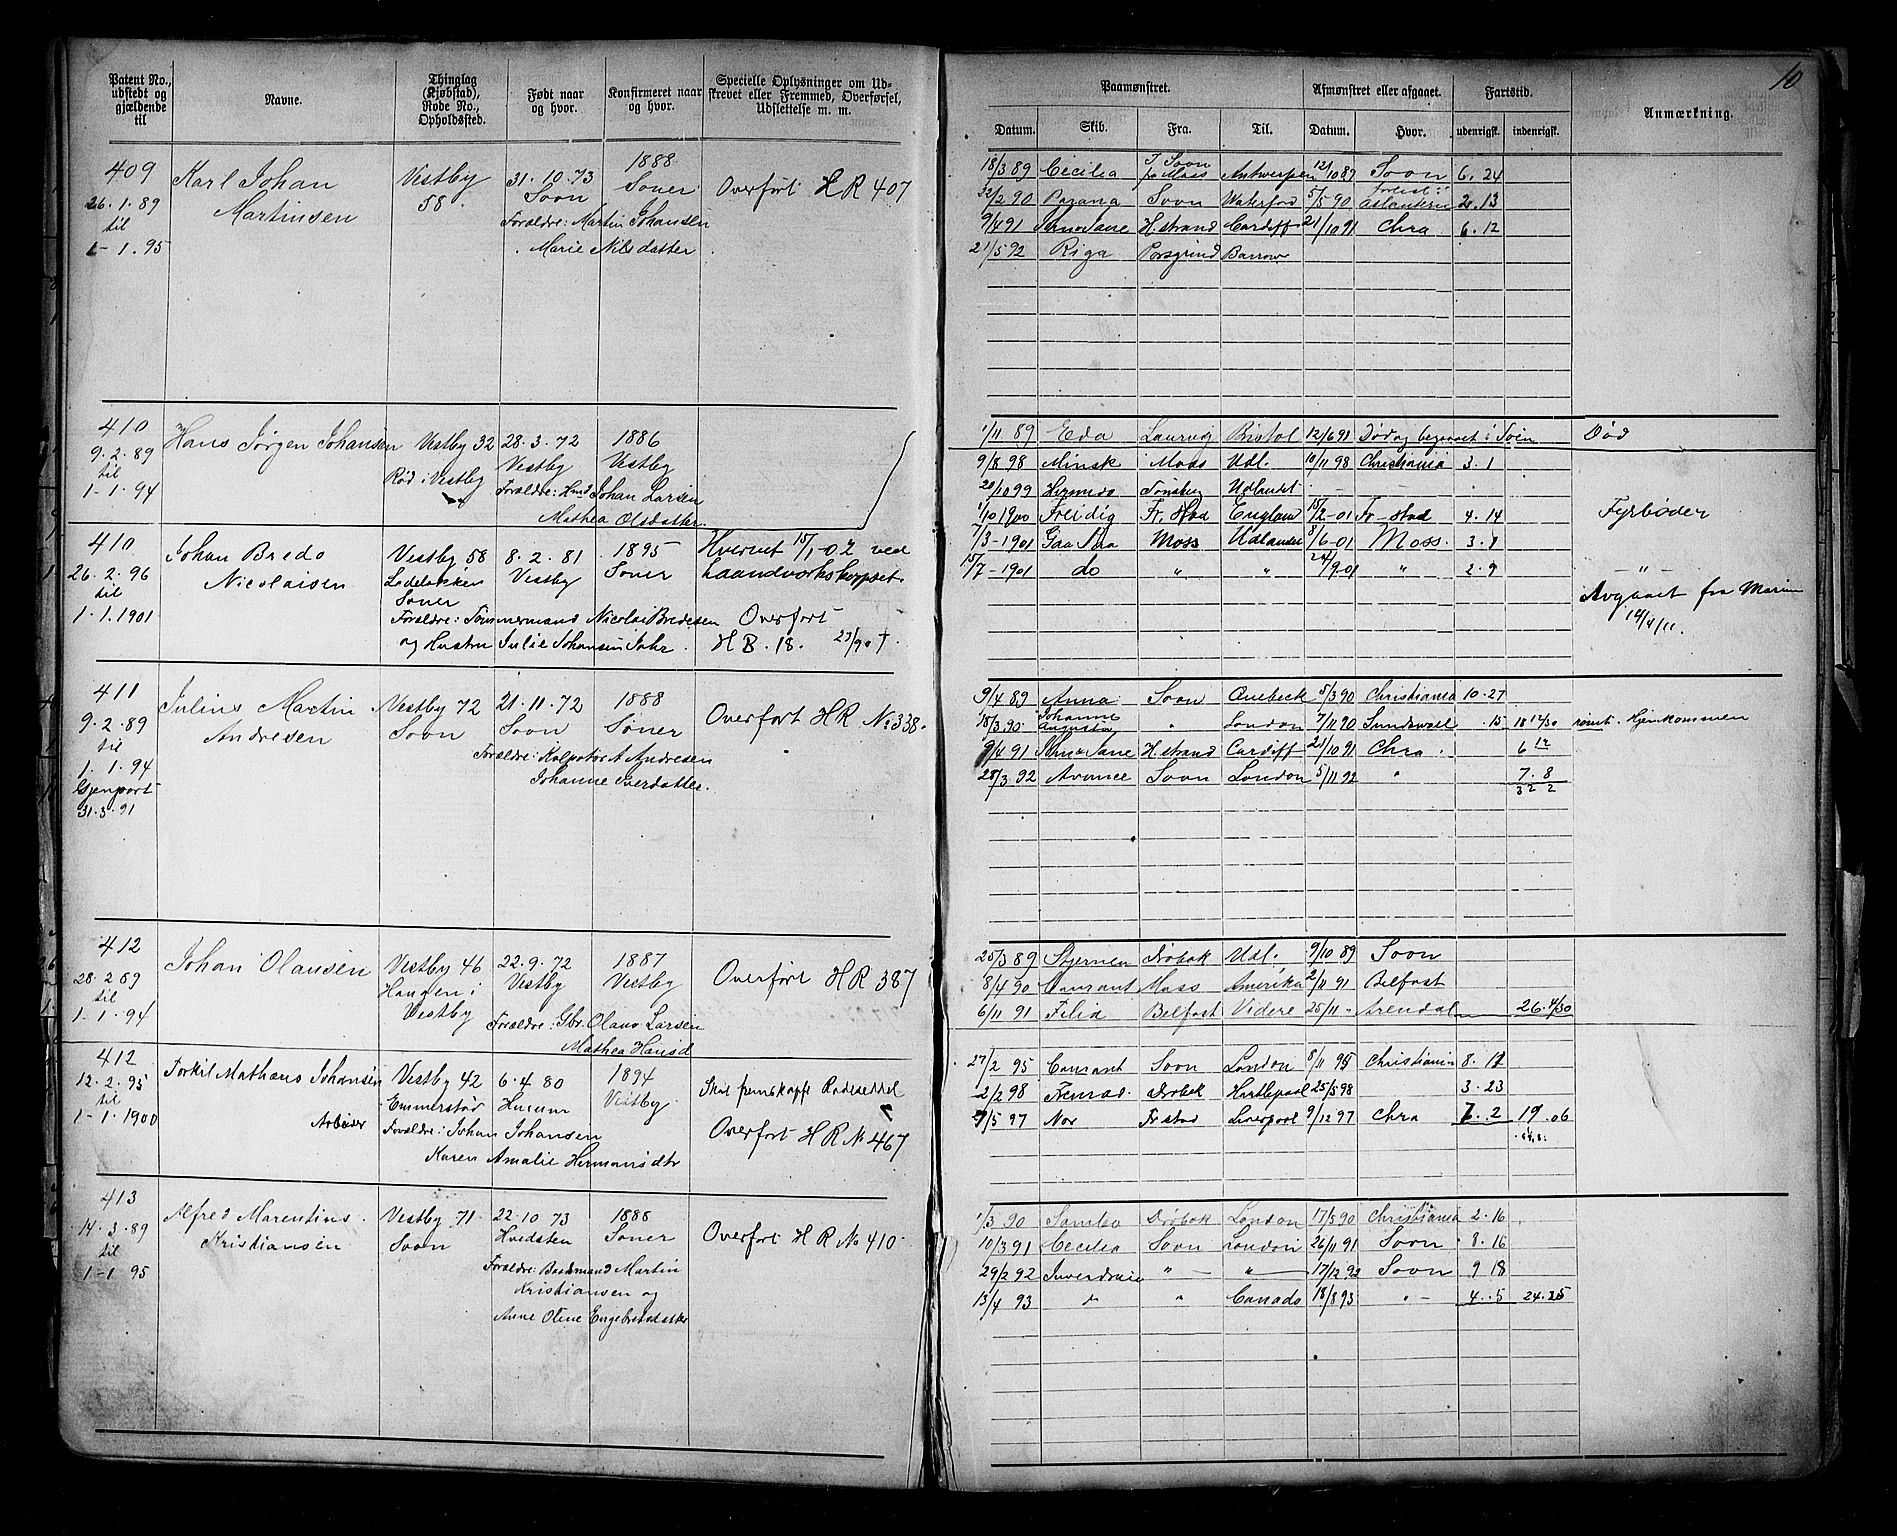 Patent No., udstedt og gjældende til
Navne.
Thinglag (Kjøbstad), Rode No., Opholdssted.
Født naar og hvor.
Konfirmeret naar og hvor.
Specielle Oplysninger om Udskrevet eller Fremmed, Overførsel, Udslettelse m. m.
409
26.1.89
til
1-1.95
Karl Johan
Martinsen
Vestby
58.
31.10.73
Soon
Forældre: Martin Johansen
Marie Nilsdatter
1888
Soner
Overført H R 407
410
9.2.89
til
1-1.94
Hans Jørgen Johansen
Vestby 32
Rød i Vestby
28.3.72
Vestby
Forældre: Hmd Johan Larsen
Mathea Olsdatter.
1886
Vestby
410
26.2.96
til
1.1.1901
Johan Bredo
Nicolaisen
Vestby 58
Labeløkken
Soner
8.2.81
Vestby
1895
Soner
Forældre: Tømmermand Nicolai Bredesen
og Hustru Julie Johansen
Hvervet 15/1-02 ved
Haandværkskorpset.
Overført
H B. 18.
411
9.2.89
til
1.1.94
Gjenpart
31.3.91
Julius Martin
Andresen
Vestby 72
Soon
21.11.72
Soon
1888
Soner
Forældre: Kolportør A Andresen
Johanne Iversdatter.
Overført H R No 338.
412
28.2.89
til
1-1.94
Johan Olausen
Vestby 46
Haugen i
Vestby
22.9.72
Vestby
1887
Vestby
Forældre: Gbr. Olaus Larsen
Mathea Hansd
Overført H R 387
412
12.2.95
til
1-1.1900
Torkil Mathæus Johansen
Arbeider
Vestby 42
Emmerstad
6.4.80
Husum
1894
Vestby.
Forældre: Johan Johansen
Karen Amalie Hermansdtr
Overført H R No 467
413
14.3.89
til
1-1 95
Alfred Marentius
Kristiansen
Vestby 71
Soon
22.10 73
Hvidsten
1888
Soner
Forældre: Baadsmand Martin
Kristiansen og
Anne Oline Engebretsdatter
Overført H R No 410
10
Paamønstret.
Afmønstret eller afgaaet.
Fartstid.
Anmærkning.
Datum. Skib. Fra. Til. Datum. Hvor. udenrigsk. indenrigsk.
18/3 89 Cecilia Soon Antwerpen 12/10 89 Soon 6. 24
Parana Soon Waterford 5/5 90 2. 13
9/4 91 H.strand Cardiff 21/10 91 Chra 6. 12
21/5 92 Riga Porsgrund Barrow
1/11 89 Eda Laurvig Bristol 12/6 91 Død og begravet i Død
9/8 98 Minsk Moss Udl. 10/11 98 Christiania 3. 1
20/10 99 Hermod Tønsberg Udlandet
1/10 1900 Freidig Fr. stad England 15/2-01 Fr-stad 4. 14 Fyrbøder
7/3-1901 Moss Udlandet 8/6-01 Moss. 3. 1
15/7-1901 do " " " 2. 9 - " -
Avgaaet fra Marinen
14/4/11.
9/4 89 Anna Soon Quebeck 5/3 90 Christiania 10. 27
18/3 90 Johanne Augusta " London 7/11 90 Sundsvall 15 rømt. Hjemkommen
9/4 91 H.strand Cardiff 21/10 91 Chra. 6 12
28/3 92 Avance Soon London 5/11 92 " 7. 8
25/3 89 Stjernen Drøbak Udl. 9/10 89 Soon
8/4 90 Courant Moss Amerika 2/11 91 Belfast
6/11 91 Filia Belfast Videre 25/11 Arendal
27/2 95 Courant Soon London 8/11 95 Christiania
2/2 98 Drøbak Hartlepool 25/5 98 3. 23
Nor Fr stad Liverpool 9/12 97 Chra 7. 2 19. 06
1/3 90 Drøbak London 17/5 90 Christiania 2. 16
10/3 91 Cecilia Soon London 26/11 91 Soon 8. 16
29/2 92 " " 17/12 92 Soon 9 18
13/4 93 " " Canada 18/8 93 " 4. 5 24. 25